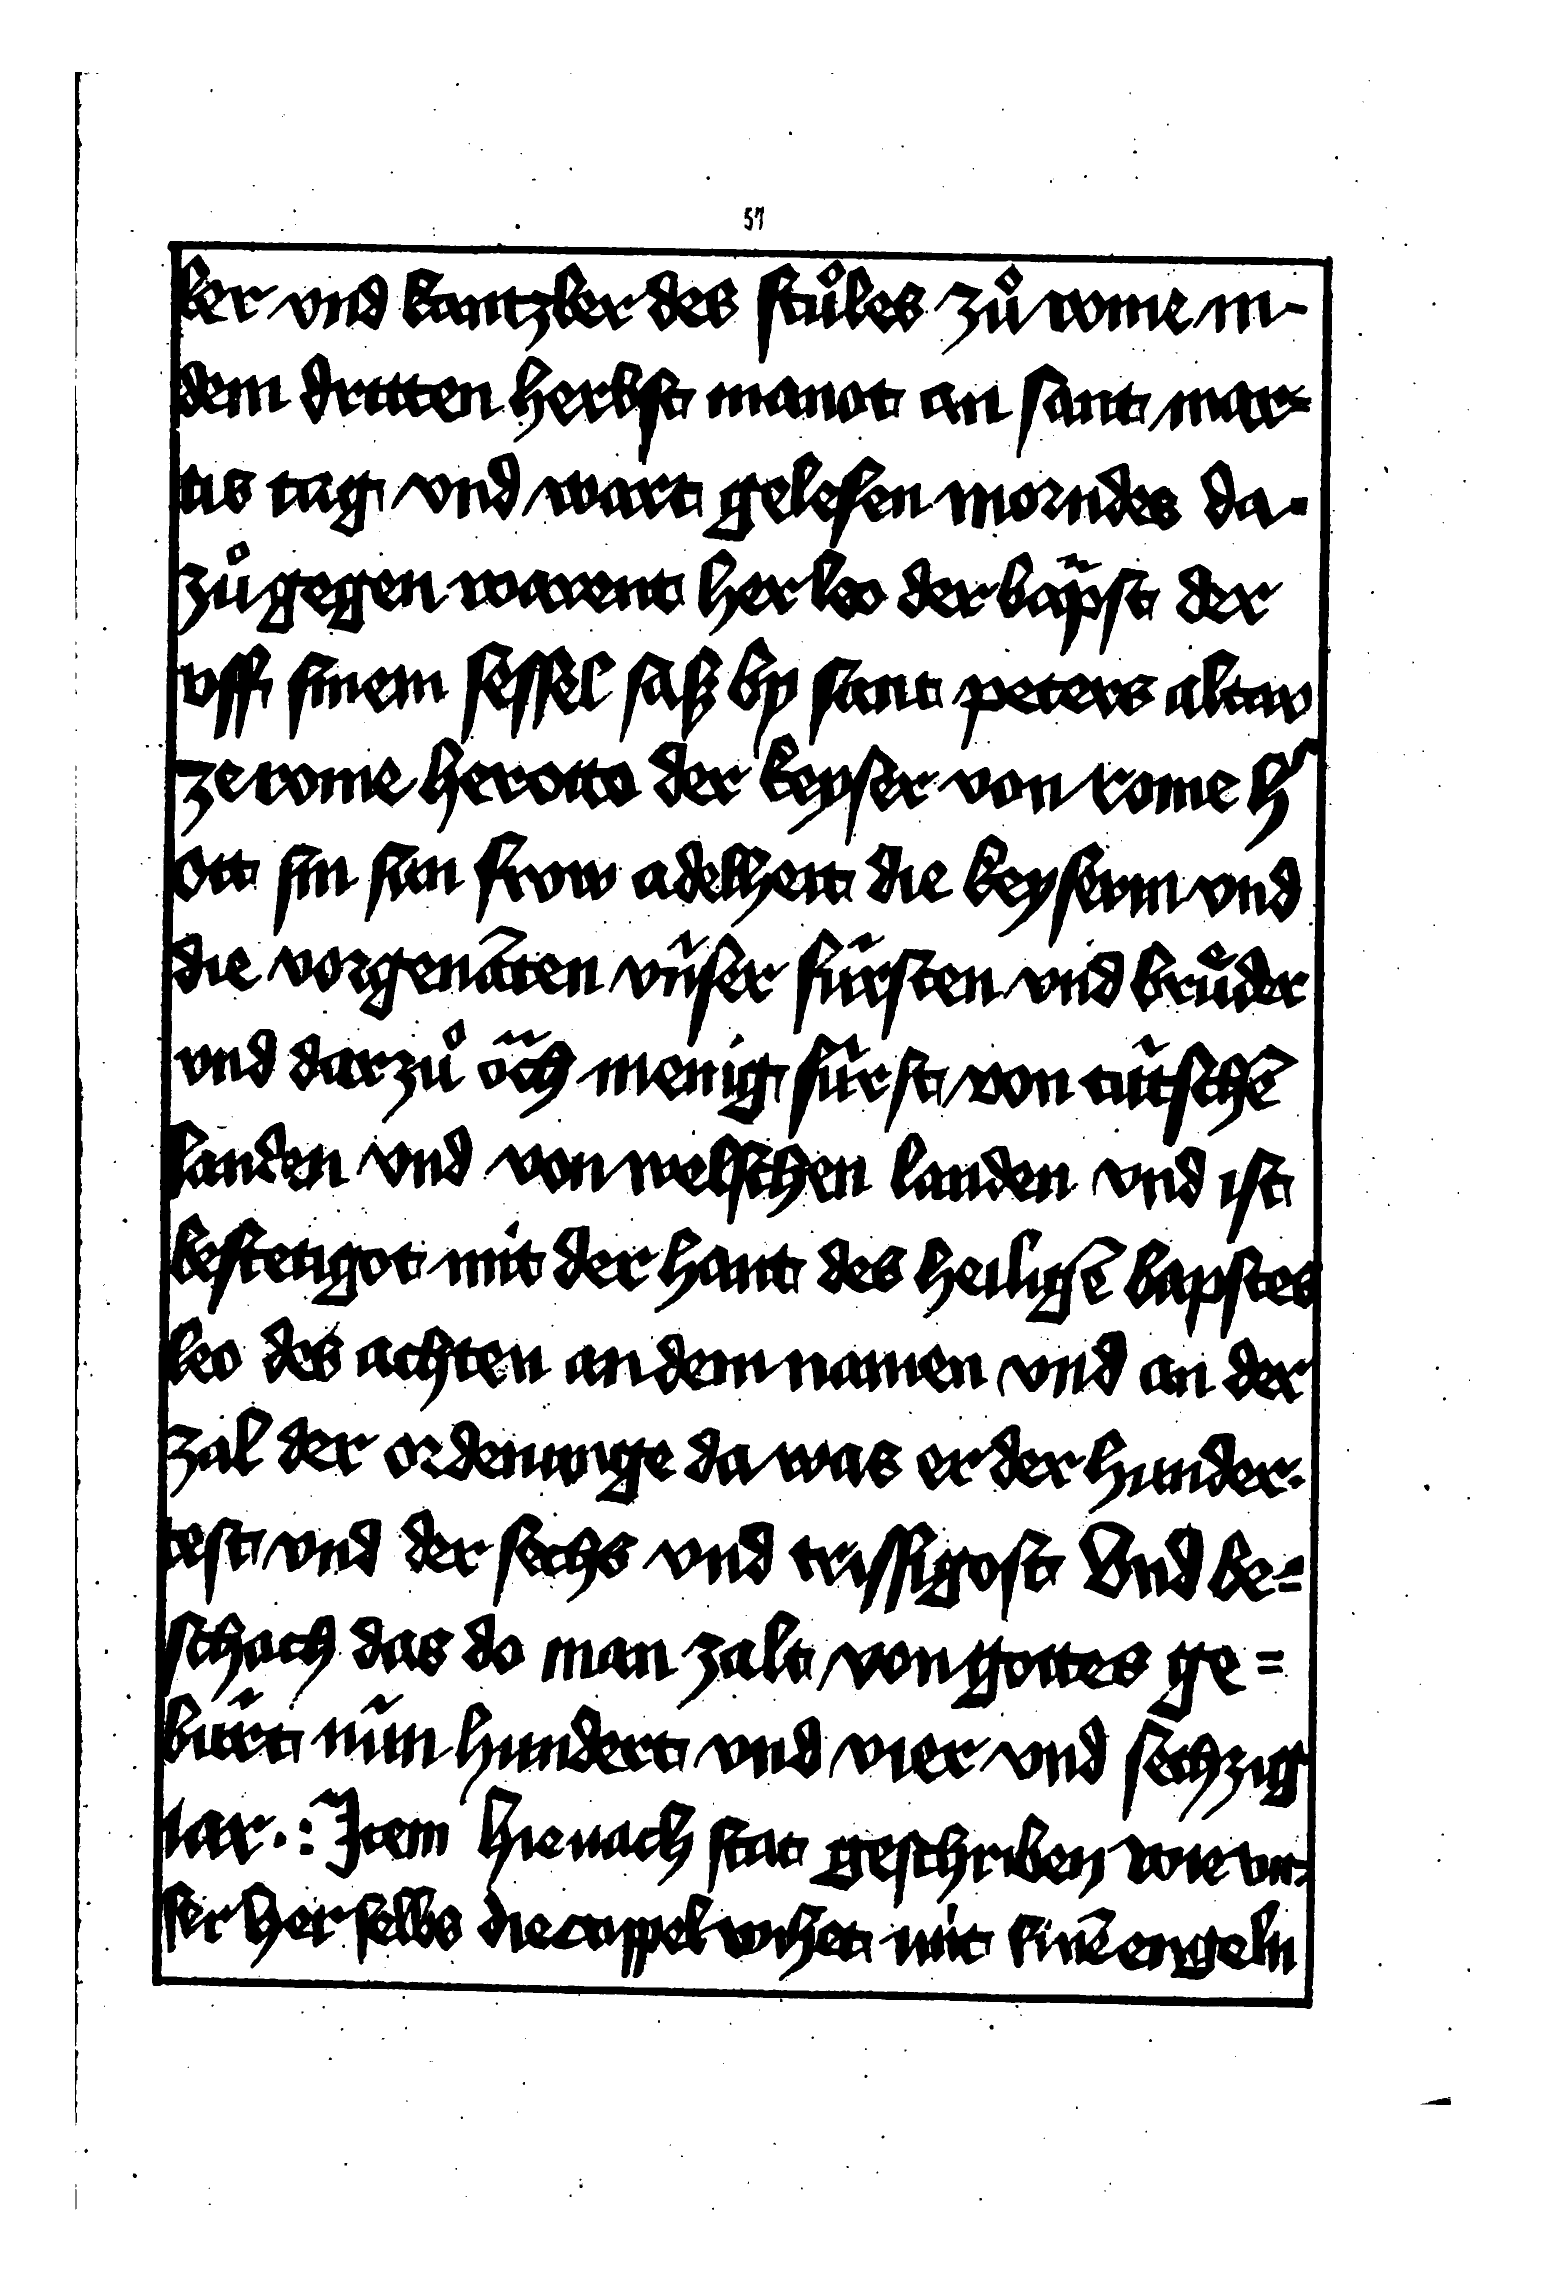 57
ber vnd kantzler des stůles zů rome in
dem dritten herbst manot an sant mar=
tis tag vnd wart gelesen morndes da-
zů gegen warent her leo der bäpst der
vff sinem sessel saß by sant peters altar
ze rome her otto der keyser von rome h'
ott sin sun frow adelheit die keyserin vnd
die vorgenāten vnser fürsten vnd brůder
vnd darzů öch menig fürst von tütschē
landen vnd von welschen landen vnd ist
bestetigot mit der hant des heiligē bapstes
leo des achten an dem namen vnd an der
zal der ordenunge da was er der hunder-
test vnd der sechs vnd trissigost Vnd be=
schach das do man zalt von gottes ge=
bürt nün hundert vnd vier vnd sechzig
iar .: Item hie nach stat geschriben wie vn-
ser her selbs die cappel wihet mit sinē engeln